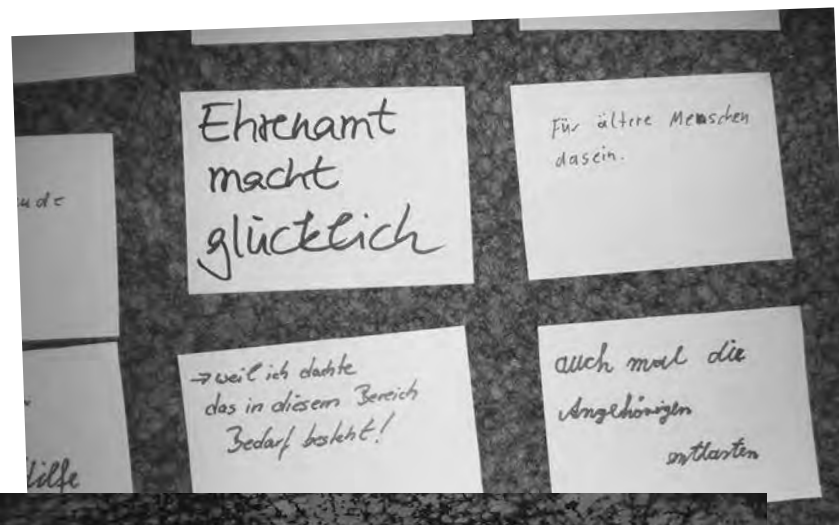 Ehrenamt
macht
glücklich
Für ältere Menschen
dasein.
→ weil ich dachte
das in diesem Bereich
Bedarf besteht!
auch mal die
Angehörigen
entlasten